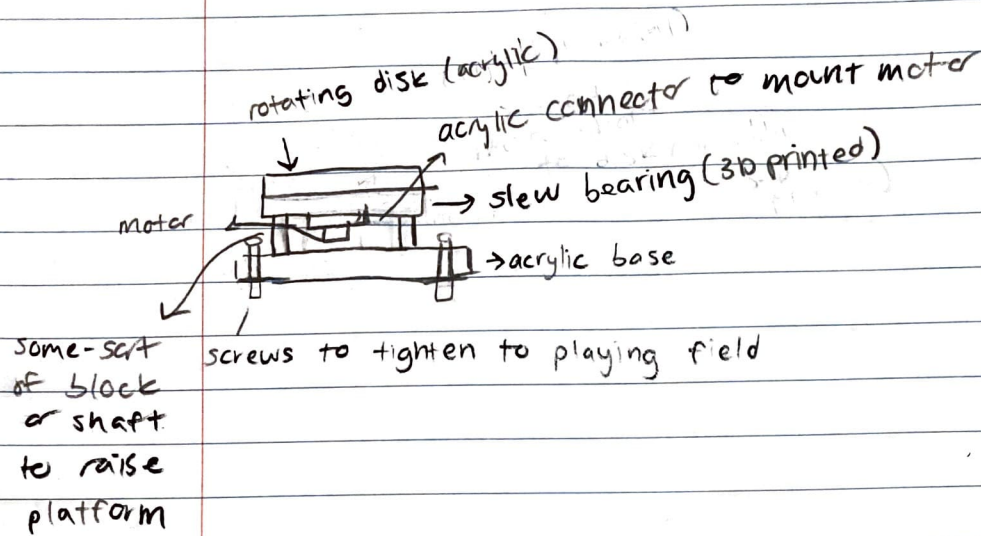 rotating disk (acrylic)
acrylic connector to mount motor
slew bearing (3D printed)
motor
acrylic base
screws to tighten to playing field
some-sort
of block
or shaft
to raise
platform